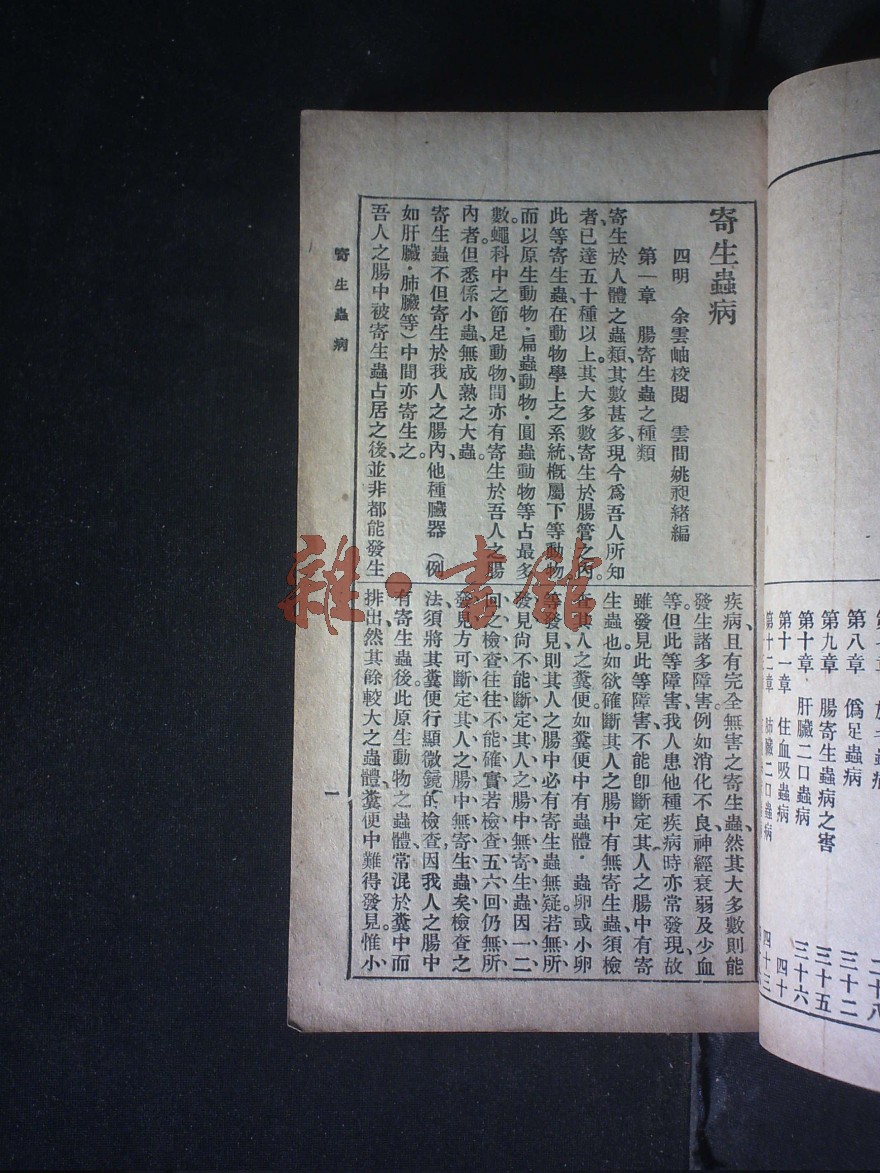 寄生蟲病
四明　余雲岫校閱　雲間姚昶緒編
第一章　腸寄生蟲之種類
寄生於人體之蟲類、其數甚多、現今爲吾人所知
者、已達五十種以上。其大多數寄生於腸管之內。
此等寄生蟲、在動物學上之系統、概屬下等動物、
而以原生動物·扁蟲動物·圓蟲動物等占最多
數。蠅科中之節足動物、間亦有寄生於吾人之腸
內者。但悉係小蟲、無成熟之大蟲。
寄生蟲不但寄生於我人之腸內、他種臟器（例
如肝臟·肺臟等）中間亦寄生之。
吾人之腸中被寄生蟲占居之後、並非都能發生
疾病、且有完全無害之寄生蟲、然其大多數則能
發生諸多障害。例如消化不良神經衰弱及少血
等。但此等障害、我人患他種疾病時亦常發現、故
雖發見此等障害、不能卽斷定其人之腸中有寄
生蟲也。如欲確斷其人之腸中有無寄生蟲、須檢
查其人之糞便、如糞便中有蟲體·蟲卵或小卵
等發見、則其人之腸中必有寄生蟲無疑。若無所
發見、尚不能斷定其人之腸中無寄生蟲、因一二
回之檢查、往往不能確實、若檢查五六回、仍無所
發見、方可斷定其人之腸中無寄生蟲矣、檢查之
法、須將其糞便行顯微鏡的檢查、因我人之腸中
有寄生蟲後、此原生動物之蟲體、常混於糞中而
排出。然其餘較大之蟲體、糞便中難得發見。惟小
寄生蟲病
一
第八章　僞足蟲病　三十二
第九章　腸寄生蟲病之害　三十五
第十章　肝臟二口蟲病　三十六
第十一章　住血吸蟲病　四十
第十二章　肺臟二口蟲病　四十三
雜·書館